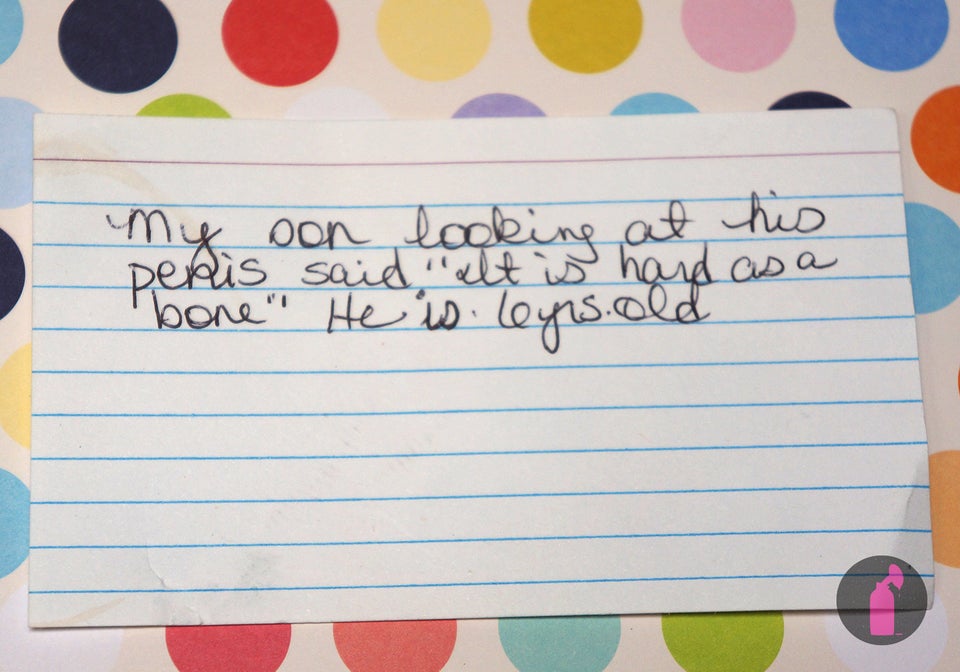 My son looking at his
penis said "It is hard as a
bone" He is 6yrs. old